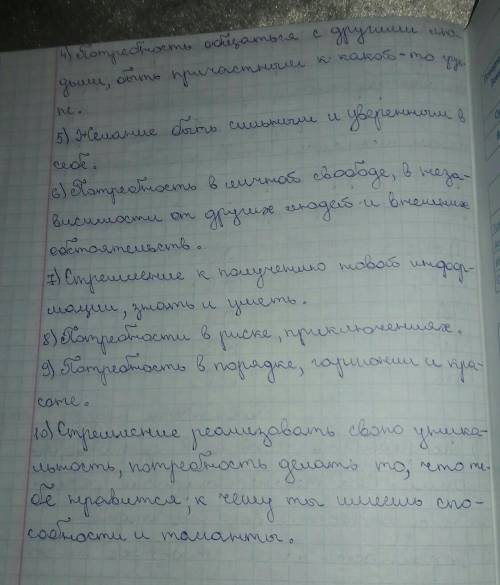 4) Потребность общаться с другими лю-
дьми, быть причастным к какой-то груп-
пе.
5) Желание быть сильным и уверенным в
себе.
6) Потребность в личной свободе, в неза-
висимости от других людей и внешних
обстоятельств.
7) Стремление к получению новой инфор-
мации, знать и уметь.
8) Потребности в риске, приключениях.
9) Потребность в порядке, гармонии и кра-
соте.
10) Стремление реализовать свою уника-
льность, потребность делать то, что те-
бе нравится, к чему ты имеешь спо-
собности и таланты.